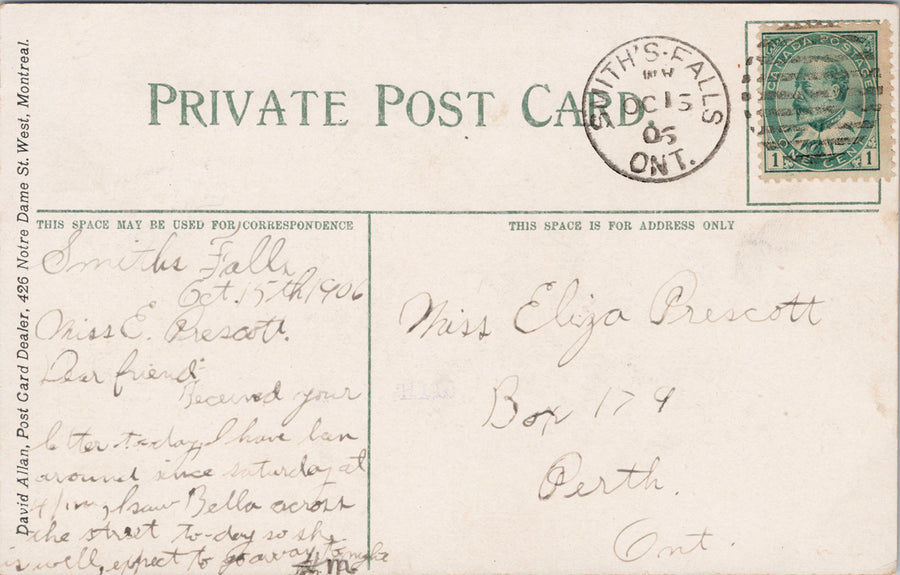 PRIVATE POST CARD.
SMITH'S-FALLS
OC 15
06
ONT.
CANADA POSTAGE
1 ONE CENT 1
David Allan, Post Card Dealer, 426 Notre Dame St. West, Montreal.
THIS SPACE MAY BE USED FOR CORRESPONDENCE
Smiths Falls
Oct. 15th 1906
Miss E. Prescott.
Dear friend
Received your
letter to-day, I have ben
around since saturday at
I saw Bella across
the street to-day so she
is well, expect to go away tonight
THIS SPACE IS FOR ADDRESS ONLY
Miss Eliza Prescott
Box 179
Perth.
Ont.